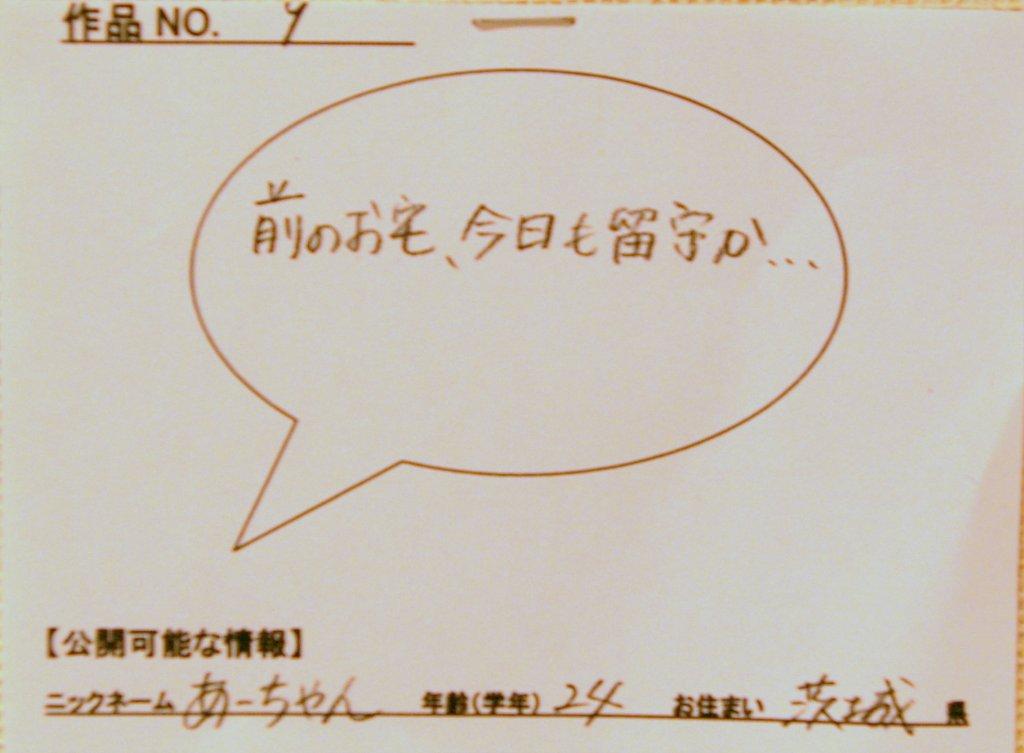 作品NO. 9
前のお宅、今日も留守か...
【公開可能な情報】
ニックネーム あーちゃん 年齢(学年) 24 お住まい 茨城 県